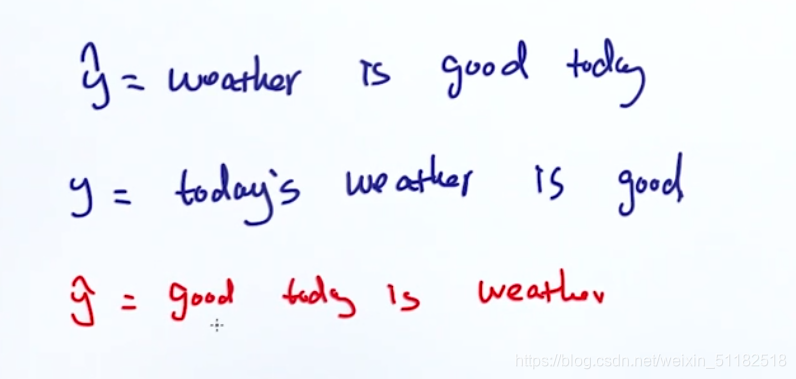 ŷ = weather is good today
y = today's weather is good
ŷ = good today is weather
https://blog.csdn.net/weixin_51182518